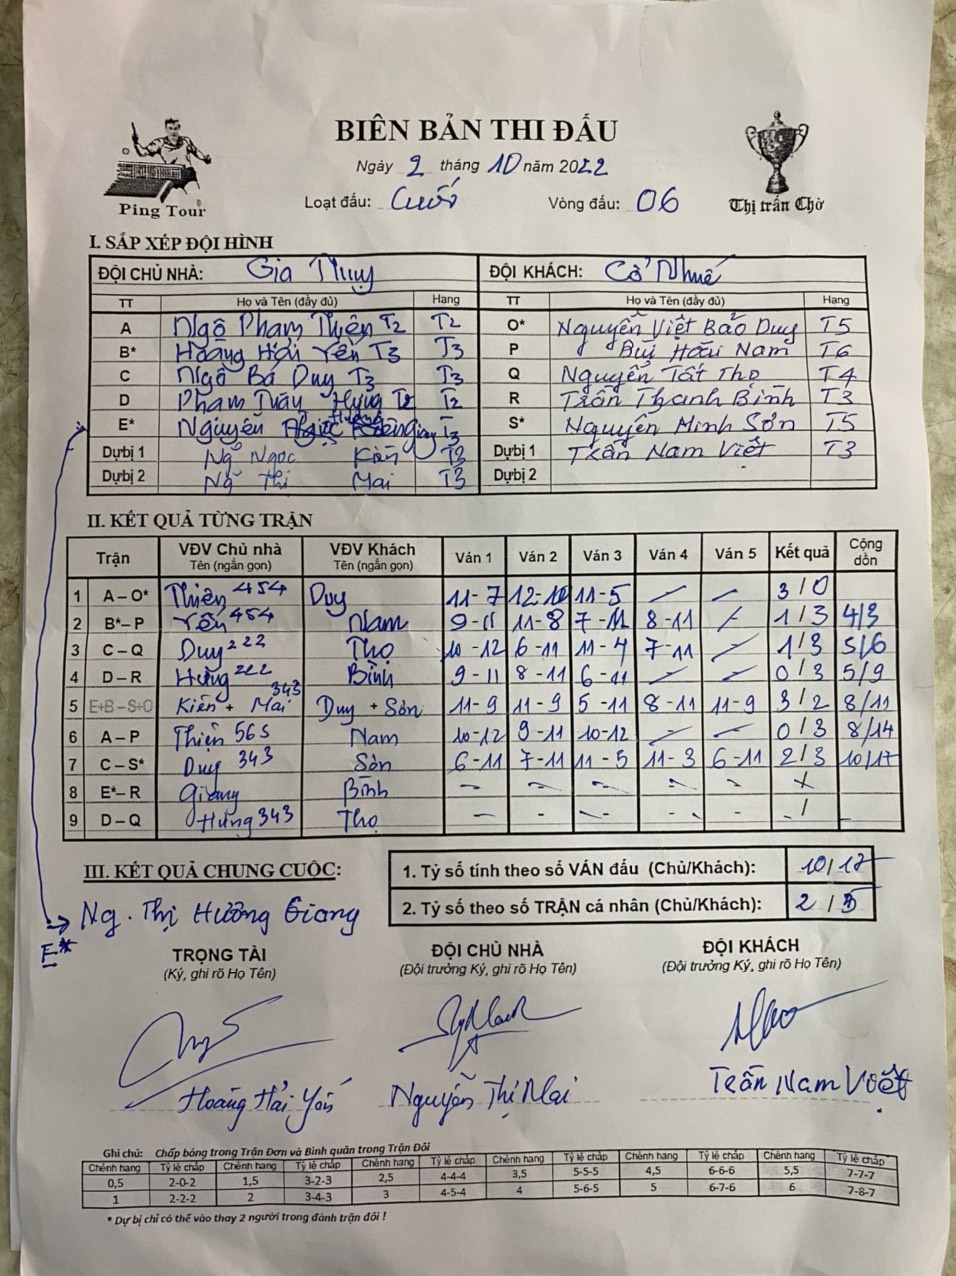 BIÊN BẢN THI ĐẤU
Ngày 2 tháng 10 năm 2022
Loạt đấu: Cuối Vòng đấu: 06
Ping Tour
Thị trấn Chờ
I. SẮP XẾP ĐỘI HÌNH
ĐỘI CHỦ NHÀ: Gia Thụy ĐỘI KHÁCH: Cổ Nhuế
TT Họ và Tên (đầy đủ) Hạng TT Họ và Tên (đầy đủ) Hạng
A Ngô Phạm Thiện T2 T2 O* Nguyễn Việt Bảo Duy T5
B* Hoàng Hải Yến T3 T3 P Bùi Hoài Nam T6
C Ngô Bá Duy T3 T3 Q Nguyễn Tất Thọ T4
D Phạm Hưng T2 T2 R Trần Thanh Bình T3
E* Nguyễn Hương Giang T3 S* Nguyễn Minh Sơn T5
Dự bị 1 Ng Ngọc Kiên T2 Dự bị 1 Trần Nam Việt T3
Dự bị 2 Ng Thị Mai T3 Dự bị 2
II. KẾT QUẢ TỪNG TRẬN
Trận VĐV Chủ nhà Tên (ngắn gọn) VĐV Khách Tên (ngắn gọn) Ván 1 Ván 2 Ván 3 Ván 4 Ván 5 Kết quả Cộng dồn
1 A – O* Thiện 454 Duy 11-7 12-10 11-5 – – 3/0
2 B* – P Yến 454 Nam 9-11 11-8 7-11 8-11 – 1/3 4/3
3 C – Q Duy 222 Thọ 10-12 6-11 11-4 7-11 – 1/3 5/6
4 D – R Hưng 222 Bình 9-11 8-11 6-11 – – 0/3 5/9
5 E+B – S+O Kiên + Mai 343 Duy + Sơn 11-9 11-9 5-11 8-11 11-9 3/2 8/11
6 A – P Thiện 565 Nam 10-12 9-11 10-12 – – 0/3 8/14
7 C – S* Duy 343 Sơn 6-11 7-11 11-5 11-3 6-11 2/3 10/17
8 E* – R Giang Bình – – – – – /
9 D – Q Hưng 343 Thọ – – – – – / -
III. KẾT QUẢ CHUNG CUỘC:
1. Tỷ số tính theo số VÁN đấu (Chủ/Khách): 10/17
2. Tỷ số theo số TRẬN cá nhân (Chủ/Khách): 2/5
E* Ng. Thị Hương Giang
TRỌNG TÀI ĐỘI CHỦ NHÀ ĐỘI KHÁCH
(Ký, ghi rõ Họ Tên) (Đội trưởng Ký, ghi rõ Họ Tên) (Đội trưởng Ký, ghi rõ Họ Tên)
Hoàng Hải Yến Nguyễn Thị Mai Trần Nam Việt
Ghi chú: Chấp bóng trong Trận Đơn và Bình quân trong Trận Đôi
Chênh hạng Tỷ lệ chấp Chênh hạng Tỷ lệ chấp Chênh hạng Tỷ lệ chấp Chênh hạng Tỷ lệ chấp Chênh hạng Tỷ lệ chấp Chênh hạng Tỷ lệ chấp
0,5 2-0-2 1,5 3-2-3 2,5 4-4-4 3,5 5-5-5 4,5 6-6-6 5,5 7-7-7
1 2-2-2 2 3-4-3 3 4-5-4 4 5-6-5 5 6-7-6 6 7-8-7
* Dự bị chỉ có thể vào thay 2 người trong đánh trận đôi !